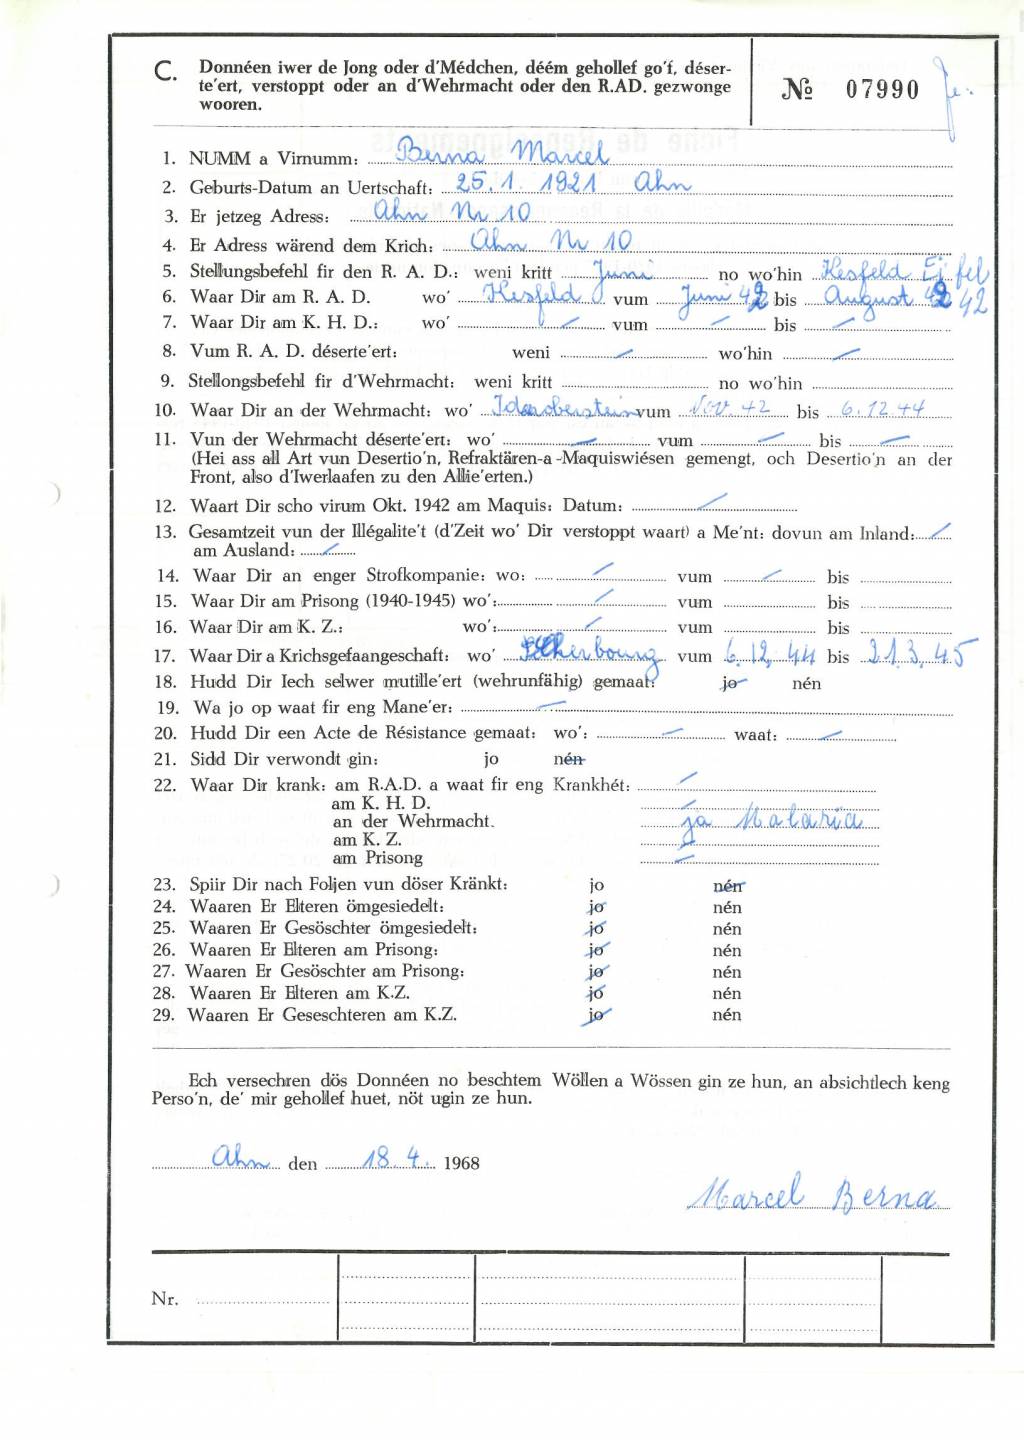 C. Donnéen iwer de Jong oder d'Médchen, déém gehollef go'f, déser-
te'ert, verstoppt oder an d'Wehrmacht oder den R.AD. gezwonge
wooren.
№ 07990
1. NUMM a Virnumm: Berna Marcel
2. Geburts-Datum an Uertschaft: 25.1.1921 Ahn
3. Er jetzeg Adress: Ahn Nr 10
4. Er Adress wärend dem Krich: Ahn Nr 10
5. Stellungsbefehl fir den R. A. D.: weni kritt Juni no wo'hin Hesfeld Eifel
6. Waar Dir am R. A. D. wo' Hesfeld vum Juni 42 bis August 42 42
7. Waar Dir am K. H. D.: wo' / vum / bis /
8. Vum R. A. D. déserte'ert: weni / wo'hin /
9. Stellongsbefehl fir d'Wehrmacht: weni kritt no wo'hin
10. Waar Dir an der Wehrmacht: wo' Idaoberstein vum Nov. 42 bis 6.12.44
11. Vun der Wehrmacht déserte'ert: wo' / vum / bis /
(Hei ass all Art vun Desertio'n, Refraktären-a-Maquiswiésen gemengt, och Desertio'n an der
Front, also d'Iwerlaafen zu den Allie'erten.)
12. Waart Dir scho virum Okt. 1942 am Maquis: Datum: /
13. Gesamtzeit vun der Illégalite't (d'Zeit wo' Dir verstoppt waart) a Me'nt: dovun am Inland: /
am Ausland: /
14. Waar Dir an enger Strofkompanie: wo: / vum / bis
15. Waar Dir am Prisong (1940-1945) wo': / vum bis
16. Waar Dir am K. Z.: wo': / vum bis
17. Waar Dir a Krichsgefaangeschaft: wo' Cherbourg vum 6.12.44 bis 21.3.45
18. Hudd Dir Iech selwer mutille'ert (wehrunfähig) gemaat: jo nén
19. Wa jo op waat fir eng Mane'er: /
20. Hudd Dir een Acte de Résistance gemaat: wo': / waat: /
21. Sidd Dir verwondt gin: jo nén
22. Waar Dir krank: am R.A.D. a waat fir eng Krankhét: /
am K. H. D. /
an der Wehrmacht. ja Malaria
am K. Z. /
am Prisong /
23. Spiir Dir nach Foljen vun döser Kränkt: jo nén
24. Waaren Er Elteren ömgesiedelt: jo nén
25. Waaren Er Gesöschter ömgesiedelt: jo nén
26. Waaren Er Elteren am Prisong: jo nén
27. Waaren Er Gesöschter am Prisong: jo nén
28. Waaren Er Elteren am K.Z. jo nén
29. Waaren Er Geseschteren am K.Z. jo nén
Ech versechren dös Donnéen no beschtem Wöllen a Wössen gin ze hun, an absichtlech keng
Perso'n, de' mir gehollef huet, nöt ugin ze hun.
Ahn den 18.4. 1968
Marcel Berna
Nr.